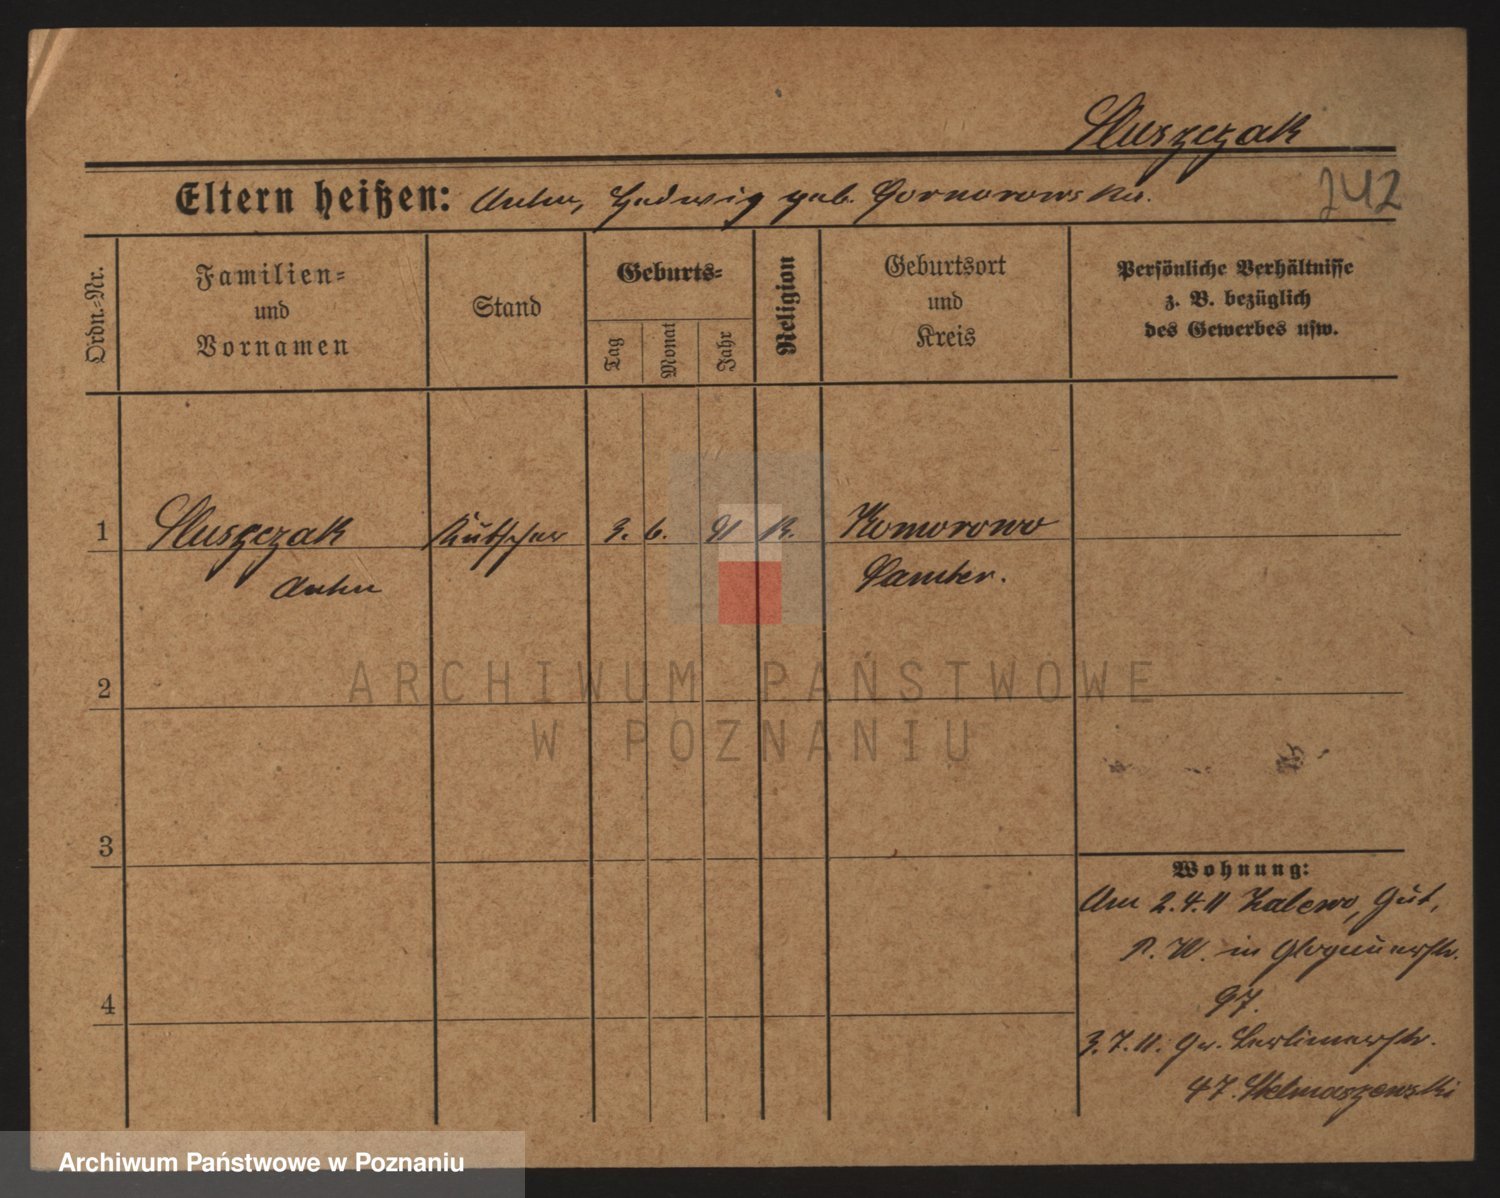 Sluszczak
Eltern heißen: Anton, Hedwig geb. Gornorowska.
242
Ordn.-Nr.
Familien-
und
Vornamen
Stand
Geburts-
Tag
Monat
Jahr
Religion
Geburtsort
und
Kreis
Persönliche Verhältnisse
z. B. bezüglich
des Gewerbes usw.
1 Sluszczak Kutscher 3. 6. 91 K. Komorowo
Anton Samter.
2
ARCHIWUM PAŃSTWOWE
W POZNANIU
3
Wohnung:
Am 2.4.11 Zalewo, Gut,
P. W. in Glogauerstr.
97.
4
3.7.11. Gr. Berlinerstr.
47. Stelmaszewski
Archiwum Państwowe w Poznaniu